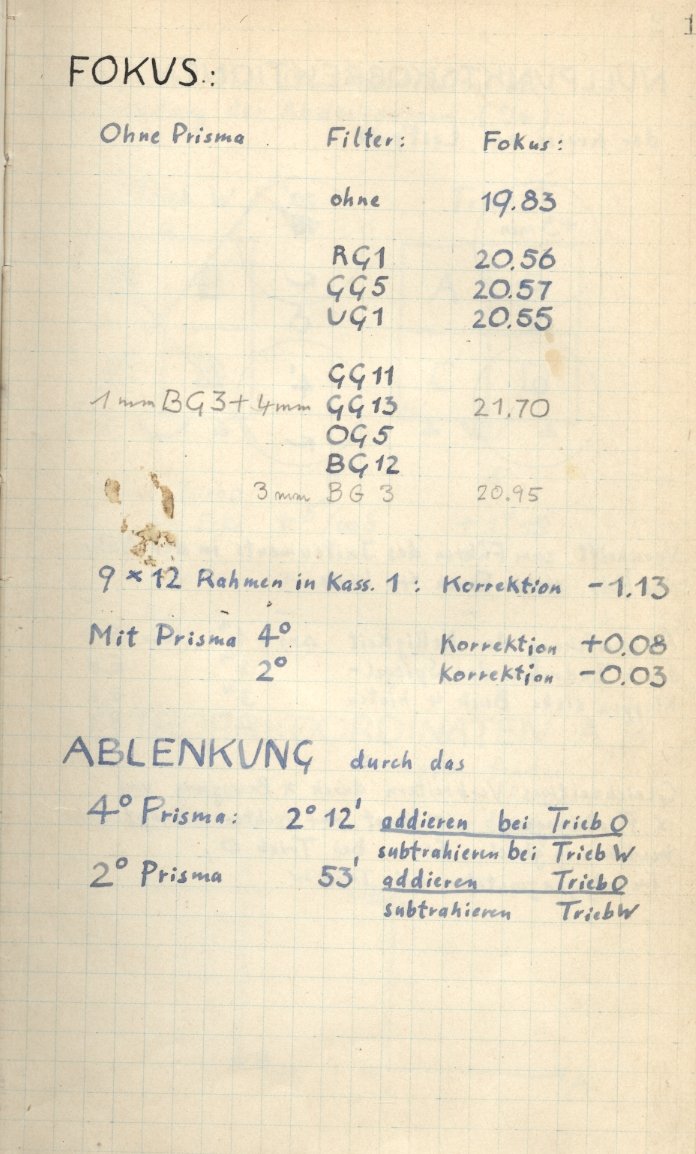 1
FOKUS:
Ohne Prisma Filter: Fokus:
ohne 19.83
RG1 20.56
GG5 20.57
UG1 20.55
GG11
1 mm BG3 + 4mm GG13 21.70
OG5
BG12
3 mm BG 3 20.95
9 × 12 Rahmen in Kass. 1 : Korrektion -1.13
Mit Prisma 4° Korrektion +0.08
2° Korrektion -0.03
ABLENKUNG durch das
4° Prisma: 2° 12' addieren bei Trieb O
subtrahieren bei Trieb W
2° Prisma 53' addieren Trieb O
subtrahieren Trieb W